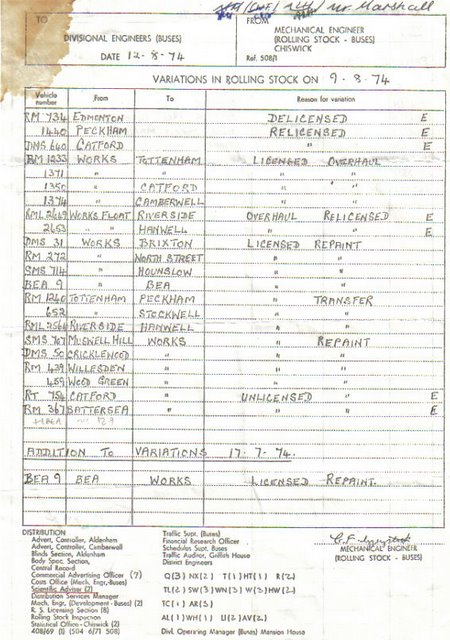 Mr Marshall
TO FROM
DIVISIONAL ENGINEERS (BUSES) MECHANICAL ENGINEER
(ROLLING STOCK - BUSES)
CHISWICK
DATE 12-8-74 Ref. 508/1
VARIATIONS IN ROLLING STOCK ON 9-8-74
Vehicle number From To Reason for variation
RM 734 EDMONTON DELICENSED E
1440 PECKHAM RELICENSED E
DMS 640 CATFORD " E
RM 1233 WORKS TOTTENHAM LICENSED OVERHAUL
1371 " " " "
1350 " CATFORD " "
1374 " CAMBERWELL " "
RML 2669 WORKS FLOAT RIVERSIDE OVERHAUL RELICENSED E
2653 " " HANWELL " " E
DMS 31 WORKS BRIXTON LICENSED REPAINT
RM 272 " NORTH STREET " "
SMS 714 " HOUNSLOW " "
BEA 9 " BEA " "
RM 1240 TOTTENHAM PECKHAM " TRANSFER
652 " STOCKWELL " "
RML 2564 RIVERSIDE HANWELL " "
SMS 767 MUSWELL HILL WORKS " REPAINT
DMS 50 CRICKLEWOOD " " "
RM 439 WILLESDEN " " "
459 WOOD GREEN " " "
RT 754 CATFORD " UNLICENSED " E
RM 367 BATTERSEA " " " E
ADDITION TO VARIATIONS 17-7-74.
BEA 9 BEA WORKS LICENSED REPAINT.
DISTRIBUTION
Advert. Controller, Aldenham
Advert. Controller, Camberwell
Blinds Section, Aldenham
Body Spec. Section,
Central Record
Commercial Advertising Officer (7)
Costs Office (Mech. Engr.-Buses)
Scientific Adviser (2)
Distribution Services Manager
Mech. Engr. (Development - Buses) (2)
R. S. Licensing Section (8)
Rolling Stock Inspection
Statistical Office - Chiswick (2)
408/69 (I) (504 6/71 508)
Traffic Supt. (Buses)
Financial Research Officer
Schedules Supt. Buses
Traffic Auditor, Griffith House
District Engineers
Q(3) NX(2) T(1) HT(1) R(2)
TL(2) SW(3) WN(3) W(3) HW(2)
TC(1) AR(3)
AL(1) WH(1) U(2) AV(2)
Divl. Operating Manager (Buses) Mansion House
MECHANICAL ENGINEER
(ROLLING STOCK - BUSES)